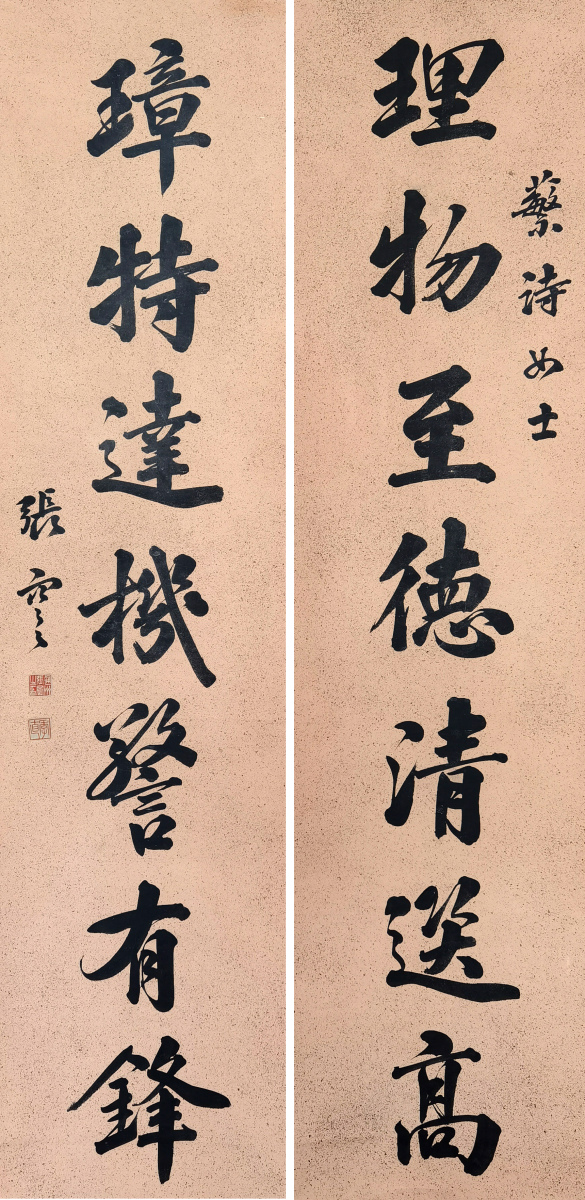 理物至德清選高
蘩詩女士
璋特達機警有鋒
張